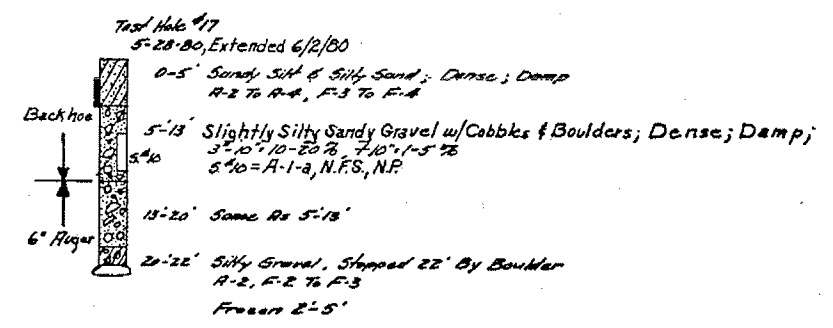 Test Hole #17
5-28-80, Extended 6/2/80
0-5' Sandy Silt & Silty Sand; Dense; Damp
A-2 To A-4, F-3 To F-4
Backhoe
5'-13' Slightly Silty Sandy Gravel w/Cobbles & Boulders; Dense; Damp;
3"-10"=10-20%, +10"=1-5%
S.#10
S.#10=A-1-a, N.F.S., N.P.
13'-20' Same As 5'-13'
6" Auger
20'-22' Silty Gravel, Stopped 22' By Boulder
A-2, F-2 To F-3
Frozen 2'-5'